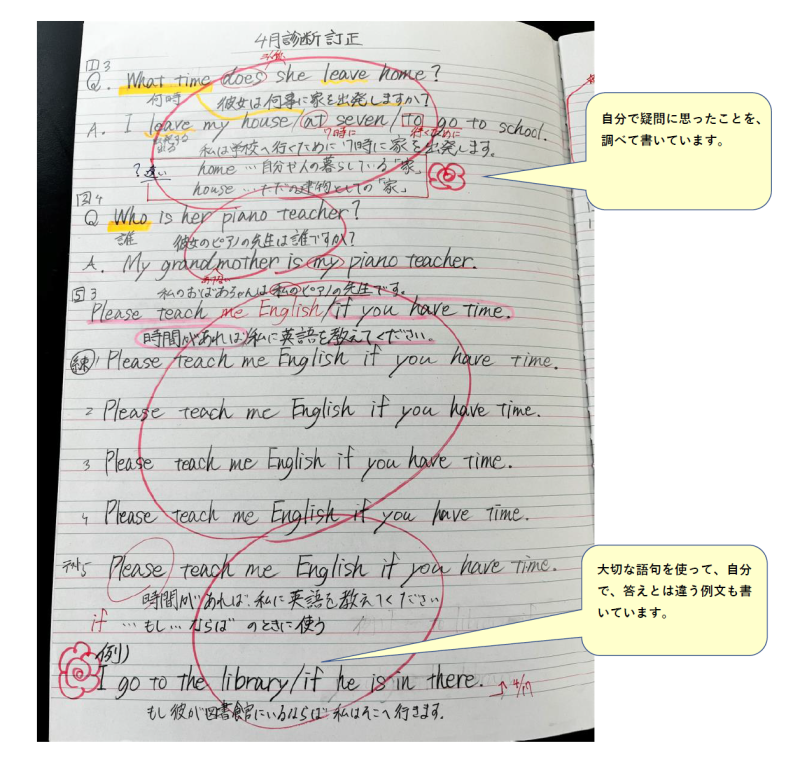 4月診断訂正
四3
Q. What time does she leave home?
何時 彼女は何事に家を出発しますか?
A. I leave my house/at seven/to go to school.
出る 7時に 行くために
私は学校へ行くために7時に家を出発します。
?違い home…自分や人の暮らしている「家」
house…ただの建物としての「家」
四4
Q Who is her piano teacher?
誰 彼女のピアノの先生は誰ですか?
A. My grandmother is my piano teacher.
私のおばあちゃんは私のピアノの先生です。
五3
Please teach me English/if you have time.
時間があれば私に英語を教えてください。
練1 Please teach me English if you have time.
2 Please teach me English if you have time.
3 Please teach me English if you have time.
4 Please teach me English if you have time.
テスト5 Please teach me English if you have time.
時間があれば私に英語を教えてください
if …もし…ならば のときに使う
例)
I go to the library/if he is in there.
4/17
もし彼が図書館にいるならば私はそこへ行きます。
自分で疑問に思ったことを、
調べて書いています。
大切な語句を使って、自分
で、答えとは違う例文も書
いています。